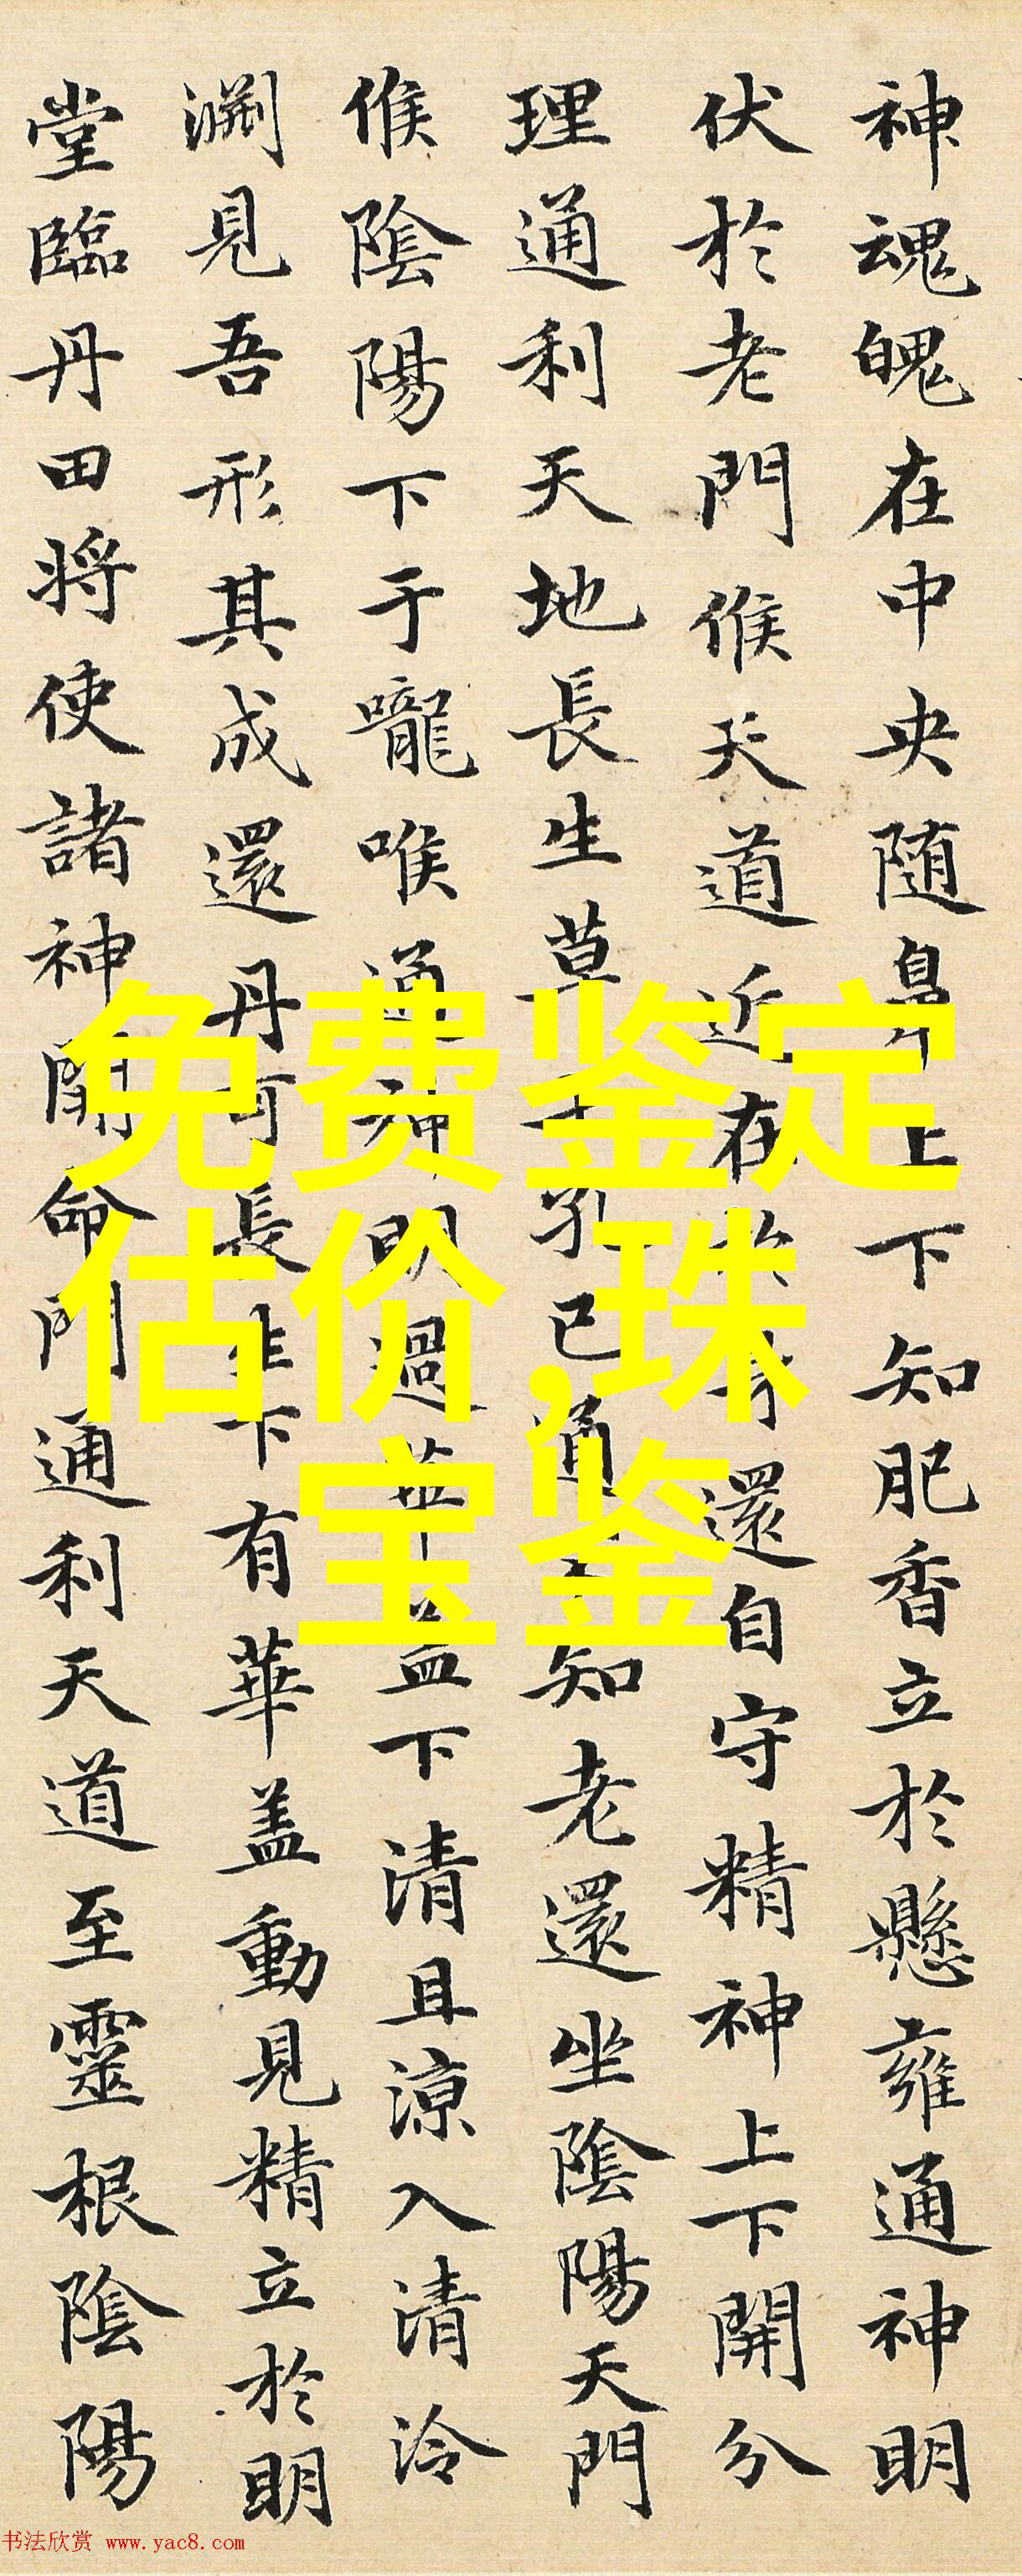 神魂魄在中央随鼻上下知肥香立於懸雍通神明
伏於老門候天道近在於身還自守精神上下開分
理通利天地長生草孔已通知老還坐陰陽天門
候陰陽下于嚨喉通神明過華蓋下清且涼入清泠
淵見吾形其成還丹可長生下有華蓋動見精立於明
堂臨丹田将使諸神開命門通利天道至靈根陰陽
免费鉴定
估价,珠
宝鉴
书法欣赏 www.yac8.com